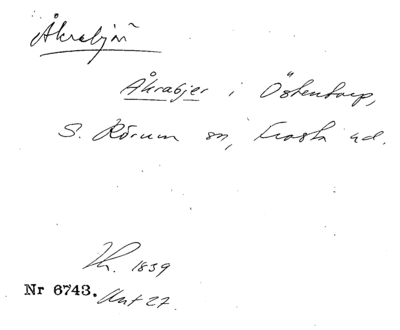 Åkrabjär
Åkrabjer i Östentorp,
S. Rörum sn, Frosta hd.
1859
Nr 6743. Akt 27.